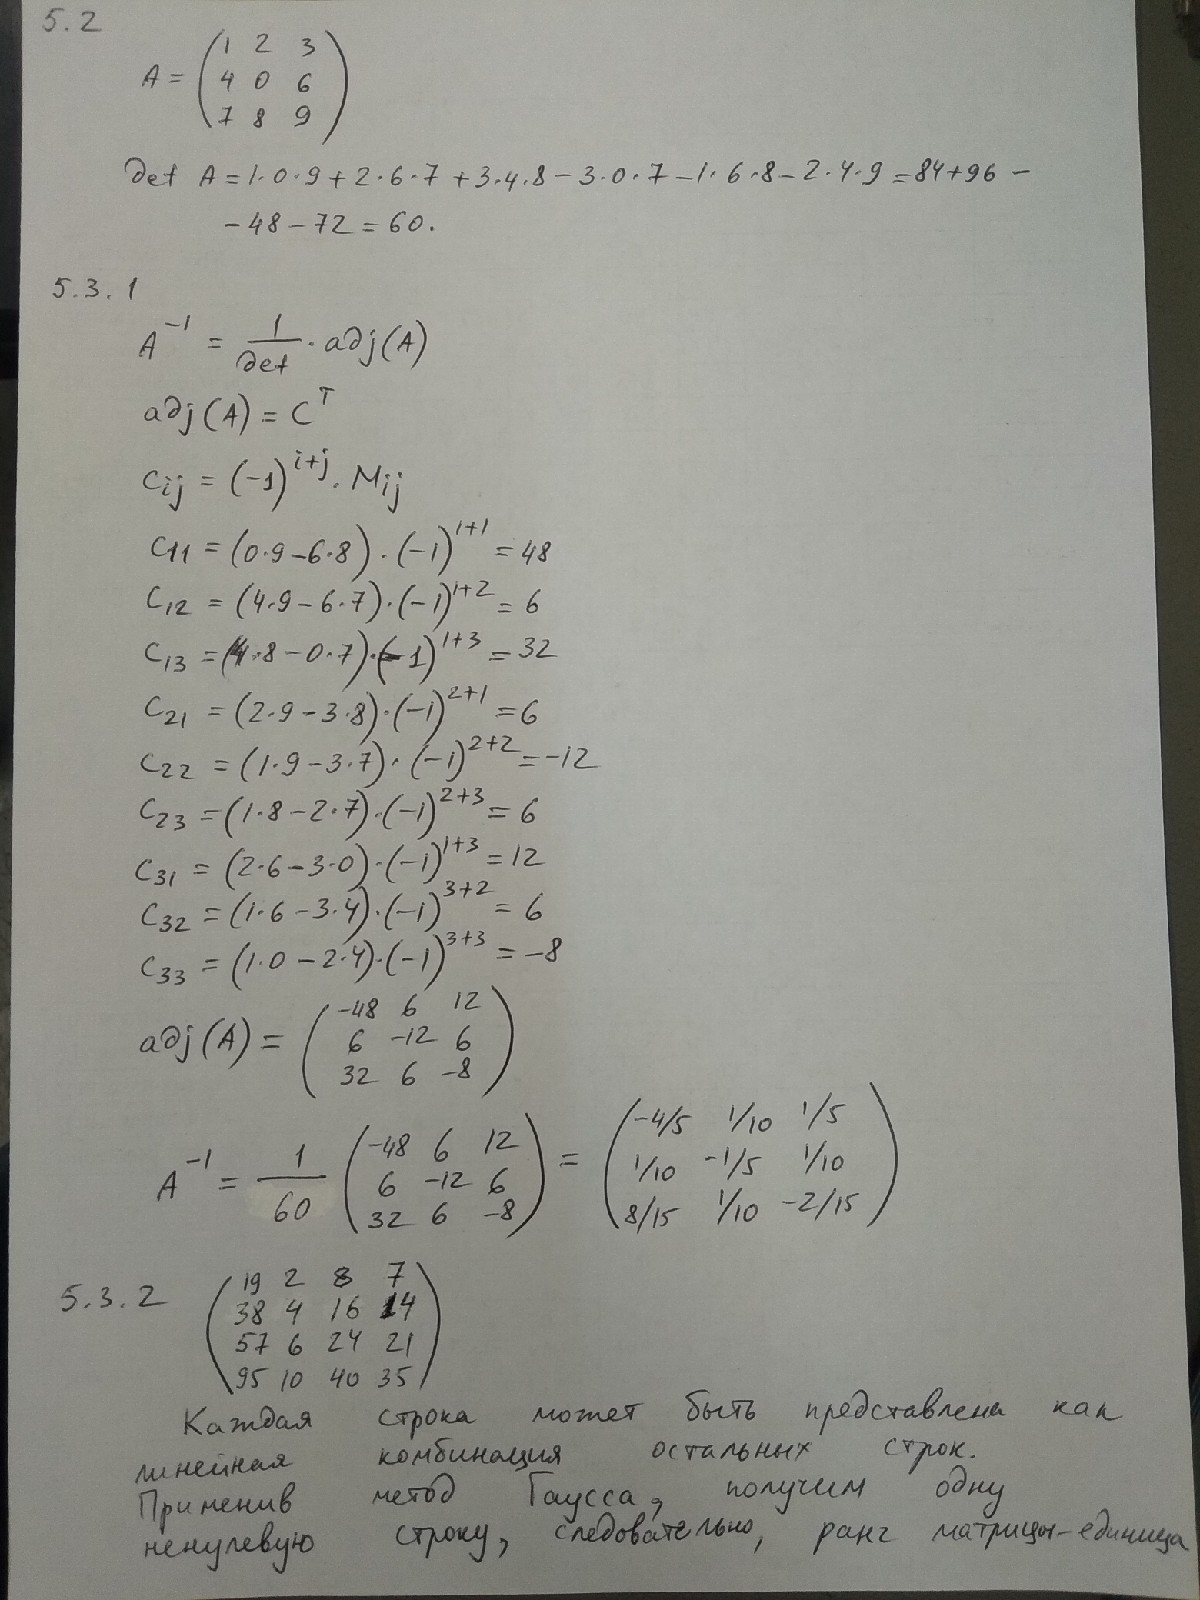 5.2
A = (1 2 3
4 0 6
7 8 9)
det A = 1·0·9 + 2·6·7 + 3·4·8 − 3·0·7 − 1·6·8 − 2·4·9 = 84 + 96 −
− 48 − 72 = 60.
5.3.1
A^-1 = 1/det · adj(A)
adj(A) = C^T
Cij = (-1)^i+j · Mij
C11 = (0·9 − 6·8) · (−1)^1+1 = 48
C12 = (4·9 − 6·7) · (−1)^1+2 = 6
C13 = (4·8 − 0·7) · (−1)^1+3 = 32
C21 = (2·9 − 3·8) · (−1)^2+1 = 6
C22 = (1·9 − 3·7) · (−1)^2+2 = −12
C23 = (1·8 − 2·7) · (−1)^2+3 = 6
C31 = (2·6 − 3·0) · (−1)^1+3 = 12
C32 = (1·6 − 3·4) · (−1)^3+2 = 6
C33 = (1·0 − 2·4) · (−1)^3+3 = −8
adj(A) = (-48 6 12
6 -12 6
32 6 -8)
A^-1 = 1/60 (-48 6 12
6 -12 6
32 6 -8) = (-4/5 1/10 1/5
1/10 -1/5 1/10
8/15 1/10 -2/15)
5.3.2 (19 2 8 7
38 4 16 14
57 6 24 21
95 10 40 35)
Каждая строка может быть представлена как
линейная комбинация остальных строк.
Применив метод Гаусса, получим одну
ненулевую строку, следовательно, ранг матрицы-единица